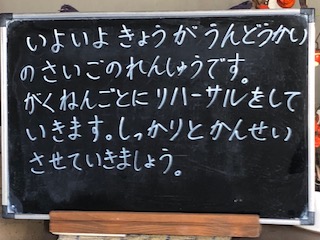 いよいよ きょうが うんどうかい
のさいごのれんしゅうです。
がくねんごとに リハーサルをして
いきます。しっかりと かんせい
させていきましょう。